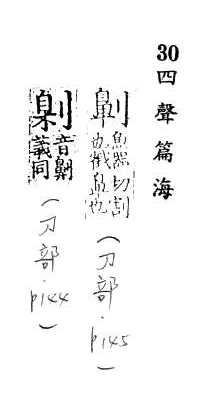 30四聲篇海
劓魚器切割也截鼻也（刀部．p145）
劓音劓義同（刀部．p144）